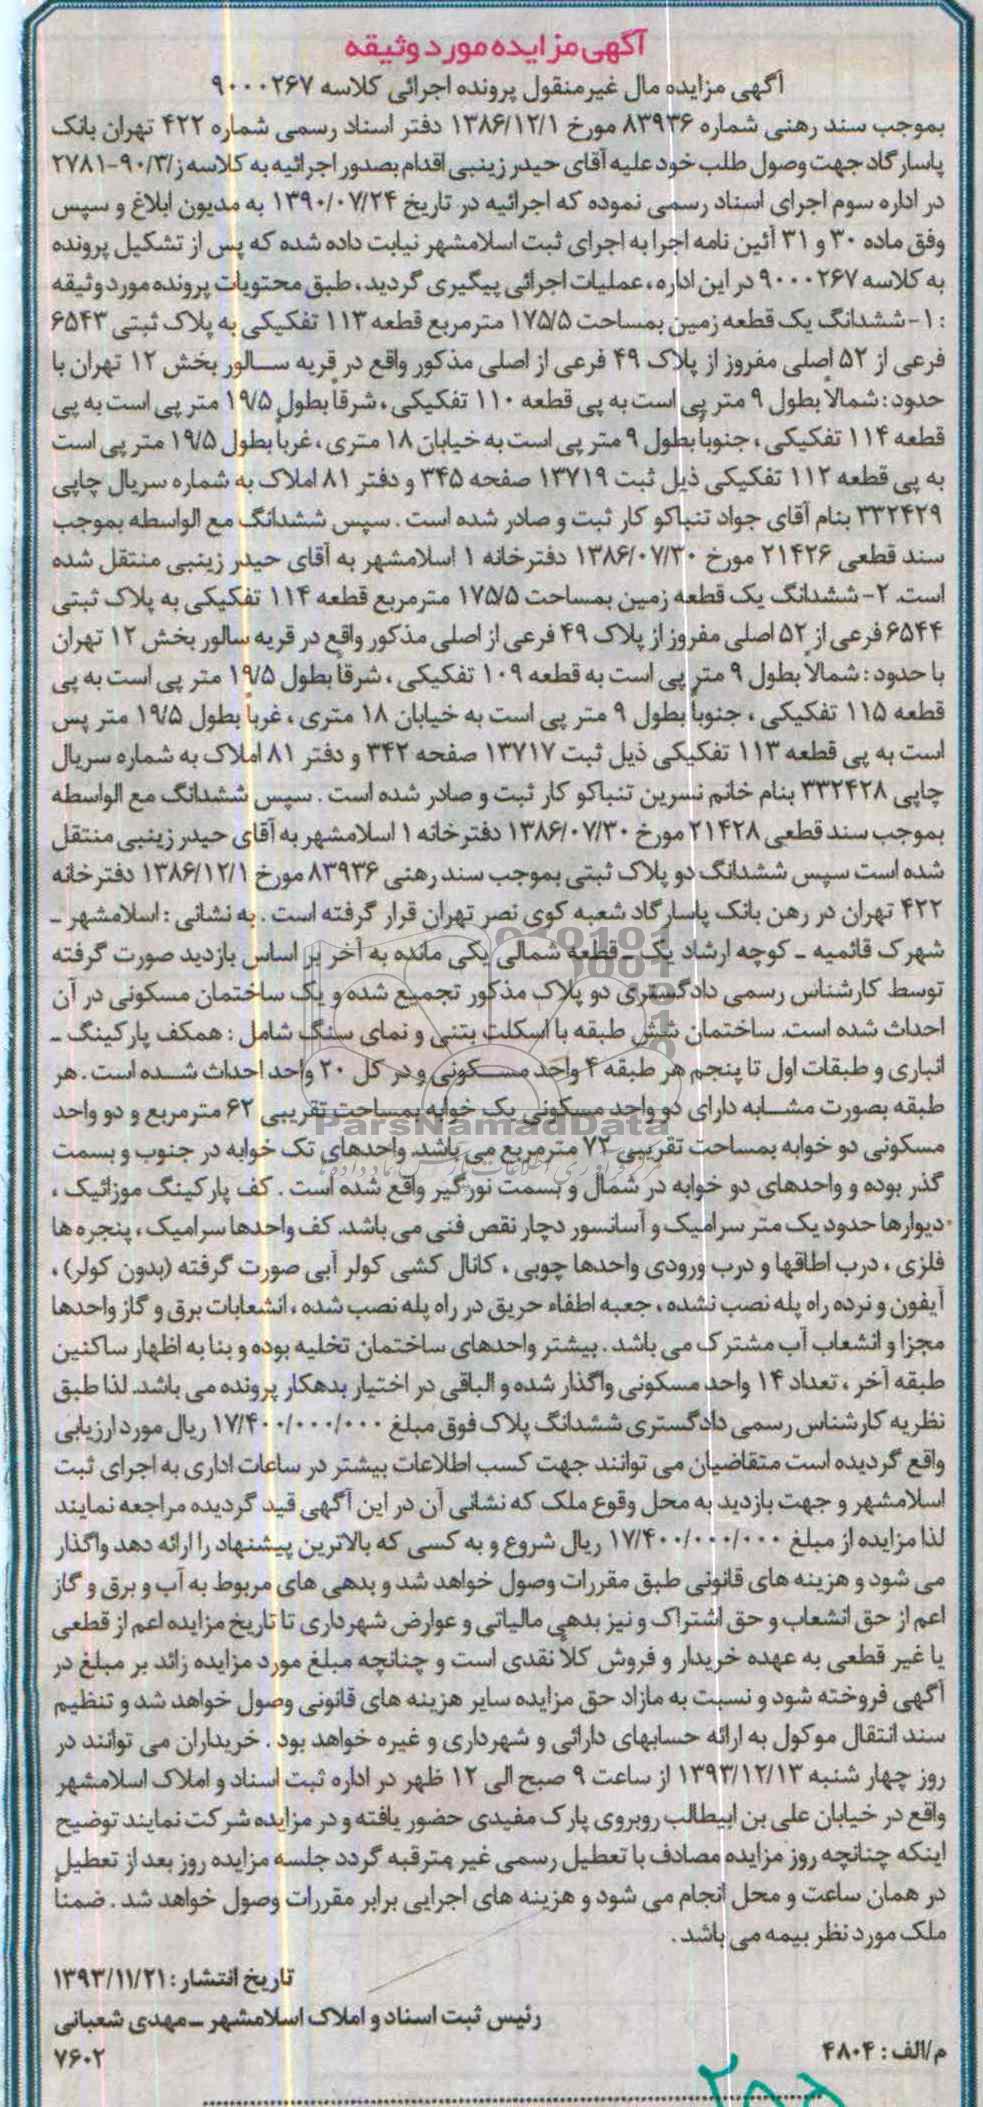 آگهی مزایده مورد وثیقه
آگهی مزایده مال غیرمنقول پرونده اجرائی کلاسه ۹۰۰۰۲۶۷
بموجب سند رهنی شماره ۸۳۹۳۶ مورخ ۱۳۸۶/۱۲/۱ دفتر اسناد رسمی شماره ۴۲۲ تهران بانک
پاسارگاد جهت وصول طلب خود علیه آقای حیدر زینبی اقدام بصدور اجرائیه به کلاسه ز/۹۰/۳-۲۷۸۱
در اداره سوم اجرای اسناد رسمی نموده که اجرائیه در تاریخ ۱۳۹۰/۰۷/۲۴ به مدیون ابلاغ و سپس
وفق ماده ۳۰ و ۳۱ آئین نامه اجرا به اجرای ثبت اسلامشهر نیابت داده شده که پس از تشکیل پرونده
به کلاسه ۹۰۰۰۲۶۷ در این اداره، عملیات اجرائی پیگیری گردید، طبق محتویات پرونده مورد وثیقه
: ۱- ششدانگ یک قطعه زمین بمساحت ۱۷۵/۵ مترمربع قطعه ۱۱۳ تفکیکی به پلاک ثبتی ۶۵۴۳
فرعی از ۵۲ اصلی مفروز از پلاک ۴۹ فرعی از اصلی مذکور واقع در قریه سالور بخش ۱۲ تهران با
حدود : شمالاً بطول ۹ متر پی است به پی قطعه ۱۱۰ تفکیکی ، شرقاً بطول ۱۹/۵ متر پی است به پی
قطعه ۱۱۴ تفکیکی ، جنوباً بطول ۹ متر پی است به خیابان ۱۸ متری ، غرباً بطول ۱۹/۵ متر پی است
به پی قطعه ۱۱۲ تفکیکی ذیل ثبت ۱۳۷۱۹ صفحه ۳۴۵ و دفتر ۸۱ املاک به شماره سریال چاپی
۳۳۲۴۲۹ بنام آقای جواد تنباکو کار ثبت و صادر شده است . سپس ششدانگ مع الواسطه بموجب
سند قطعی ۲۱۴۲۶ مورخ ۱۳۸۶/۰۷/۳۰ دفترخانه ۱ اسلامشهر به آقای حیدر زینبی منتقل شده
است. ۲- ششدانگ یک قطعه زمین بمساحت ۱۷۵/۵ مترمربع قطعه ۱۱۴ تفکیکی به پلاک ثبتی
۶۵۴۴ فرعی از ۵۲ اصلی مفروز از پلاک ۴۹ فرعی از اصلی مذکور واقع در قریه سالور بخش ۱۲ تهران
با حدود : شمالاً بطول ۹ متر پی است به قطعه ۱۰۹ تفکیکی ، شرقاً بطول ۱۹/۵ متر پی است به پی
قطعه ۱۱۵ تفکیکی ، جنوباً بطول ۹ متر پی است به خیابان ۱۸ متری ، غرباً بطول ۱۹/۵ متر پس
است به پی قطعه ۱۱۳ تفکیکی ذیل ثبت ۱۳۷۱۷ صفحه ۳۴۲ و دفتر ۸۱ املاک به شماره سریال
چاپی ۳۳۲۴۲۸ بنام خانم نسرین تنباکو کار ثبت و صادر شده است . سپس ششدانگ مع الواسطه
بموجب سند قطعی ۲۱۴۲۸ مورخ ۱۳۸۶/۰۷/۳۰ دفترخانه ۱ اسلامشهر به آقای حیدر زینبی منتقل
شده است سپس ششدانگ دو پلاک ثبتی بموجب سند رهنی ۸۳۹۳۶ مورخ ۱۳۸۶/۱۲/۱ دفترخانه
۴۲۲ تهران در رهن بانک پاسارگاد شعبه کوی نصر تهران قرار گرفته است . به نشانی : اسلامشهر ـ
شهرک قائمیه ـ کوچه ارشاد یک ـ قطعه شمالی یکی مانده به آخر بر اساس بازدید صورت گرفته
توسط کارشناس رسمی دادگستری دو پلاک مذکور تجمیع شده و یک ساختمان مسکونی در آن
احداث شده است. ساختمان شش طبقه با اسکلت بتنی و نمای سنگ شامل : همکف پارکینگ ـ
انباری و طبقات اول تا پنجم هر طبقه ۴ واحد مسکونی و در کل ۲۰ واحد احداث شده است . هر
طبقه بصورت مشابه دارای دو واحد مسکونی یک خوابه بمساحت تقریبی ۶۲ مترمربع و دو واحد
ParsNamadData
مسکونی دو خوابه بمساحت تقریبی ۷۲ مترمربع می باشد. واحدهای تک خوابه در جنوب و بسمت
گذر بوده و واحدهای دو خوابه در شمال و بسمت نورگیر واقع شده است . کف پارکینگ موزائیک ،
دیوارها حدود یک متر سرامیک و آسانسور دچار نقص فنی می باشد. کف واحدها سرامیک ، پنجره ها
فلزی ، درب اطاقها و درب ورودی واحدها چوبی ، کانال کشی کولر آبی صورت گرفته (بدون کولر) ،
آیفون و نرده راه پله نصب نشده ، جعبه اطفاء حریق در راه پله نصب شده ، انشعابات برق و گاز واحدها
مجزا و انشعاب آب مشترک می باشد . بیشتر واحدهای ساختمان تخلیه بوده و بنا به اظهار ساکنین
طبقه آخر ، تعداد ۱۴ واحد مسکونی واگذار شده و الباقی در اختیار بدهکار پرونده می باشد. لذا طبق
نظریه کارشناس رسمی دادگستری ششدانگ پلاک فوق مبلغ ۱۷/۴۰۰/۰۰۰/۰۰۰ ریال مورد ارزیابی
واقع گردیده است متقاضیان می توانند جهت کسب اطلاعات بیشتر در ساعات اداری به اجرای ثبت
اسلامشهر و جهت بازدید به محل وقوع ملک که نشانی آن در این آگهی قید گردیده مراجعه نمایند
لذا مزایده از مبلغ ۱۷/۴۰۰/۰۰۰/۰۰۰ ریال شروع و به کسی که بالاترین پیشنهاد را ارائه دهد واگذار
می شود و هزینه های قانونی طبق مقررات وصول خواهد شد و بدهی های مربوط به آب و برق و گاز
اعم از حق انشعاب و حق اشتراک و نیز بدهی مالیاتی و عوارض شهرداری تا تاریخ مزایده اعم از قطعی
یا غیر قطعی به عهده خریدار و فروش کلاً نقدی است و چنانچه مبلغ مورد مزایده زائد بر مبلغ در
آگهی فروخته شود و نسبت به مازاد حق مزایده سایر هزینه های قانونی وصول خواهد شد و تنظیم
سند انتقال موکول به ارائه حسابهای دارائی و شهرداری و غیره خواهد بود . خریداران می توانند در
روز چهار شنبه ۱۳۹۳/۱۲/۱۳ از ساعت ۹ صبح الی ۱۲ ظهر در اداره ثبت اسناد و املاک اسلامشهر
واقع در خیابان علی بن ابیطالب روبروی پارک مفیدی حضور یافته و در مزایده شرکت نمایند توضیح
اینکه چنانچه روز مزایده مصادف با تعطیل رسمی غیر مترقبه گردد جلسه مزایده روز بعد از تعطیل
در همان ساعت و محل انجام می شود و هزینه های اجرایی برابر مقررات وصول خواهد شد . ضمناً
ملک مورد نظر بیمه می باشد .
تاریخ انتشار : ۱۳۹۳/۱۱/۲۱
رئیس ثبت اسناد و املاک اسلامشهر ـ مهدی شعبانی
م/الف : ۴۸۰۴
۷۶۰۲